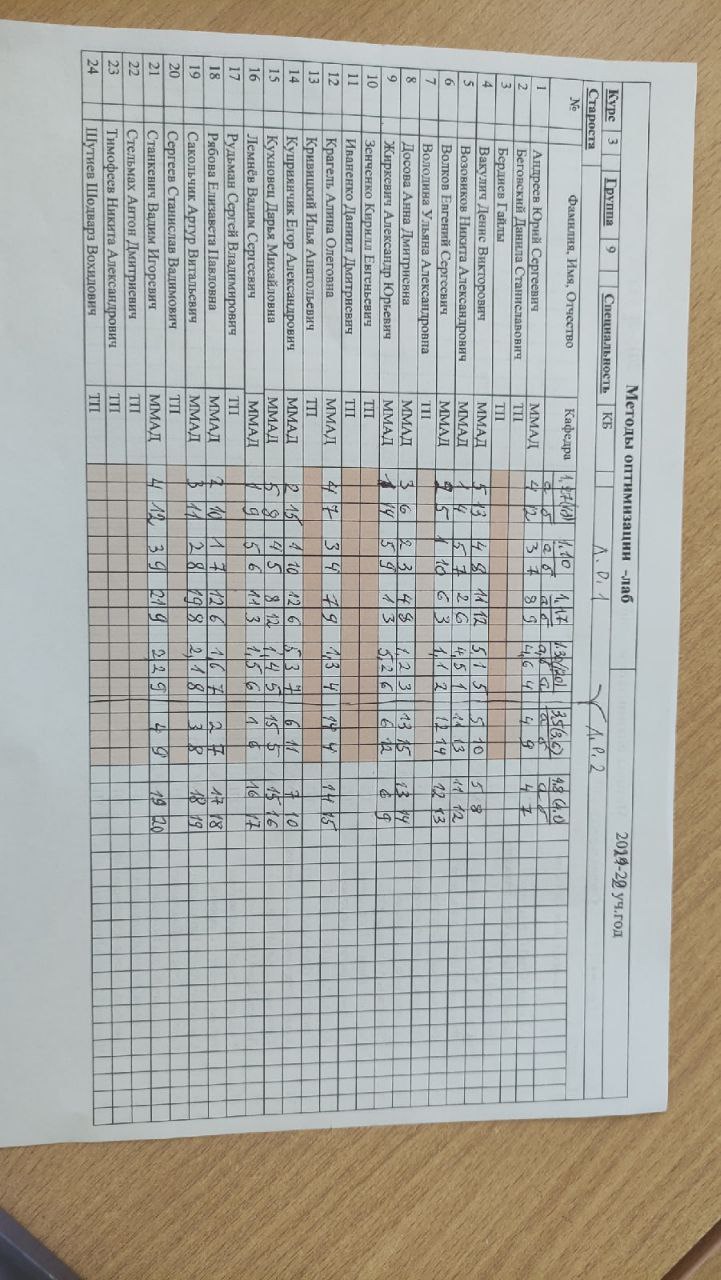 Методы оптимизации -лаб 2021-22 уч.год
Курс 3 Группа 9 Специальность КБ
Староста Л.Р.1 Л.Р.2
№ Фамилия, Имя, Отчество Кафедра 1.10 1.17
1 Андреев Юрий Сергеевич ММАД 4 12 3 7 8 9 4,6 4 4 9 4 7
2 Беговский Данила Станиславович ТП
3 Бердиев Гайлы ТП
4 Вакулич Денис Викторович ММАД 5 13 4 8 11 12 5,1 5 5 10 5 8
5 Возовиков Никита Александрович ММАД 1 4 5 7 2 6 4,5 1 11 13 11 12
6 Волков Евгений Сергеевич ММАД 2 5 1 10 6 3 1,1 2 12 14 12 13
7 Володина Ульяна Александровна ТП
8 Досова Анна Дмитриевна ММАД 3 6 2 3 4 8 1,2 3 13 15 13 14
9 Жиркевич Александр Юрьевич ММАД 1 14 5 9 1 3 5,2 6 6 12 6 9
10 Зенченко Кирилл Евгеньевич ТП
11 Иваненко Даниил Дмитриевич ТП
12 Крагель Алина Олеговна ММАД 4 7 3 4 7 9 1,3 4 14 4 14 15
13 Кривицкий Илья Анатольевич ТП
14 Куприянчик Егор Александрович ММАД 2 15 1 10 12 6 5,3 7 6 11 7 10
15 Кухновец Дарья Михайловна ММАД 5 8 4 5 8 12 1,4 5 15 5 15 16
16 Лемнёв Вадим Сергеевич ММАД 1 9 5 6 11 3 1,5 6 1 6 16 17
17 Рудьман Сергей Владимирович ТП
18 Рябова Елизавета Павловна ММАД 2 10 1 7 12 6 1,6 7 2 7 17 18
19 Сакольчик Артур Витальевич ММАД 3 11 2 8 19 8 2,1 8 3 8 18 19
20 Сергеев Станислав Вадимович ТП
21 Станкевич Вадим Игоревич ММАД 4 12 3 9 21 9 2,2 9 4 9 19 20
22 Стельмах Антон Дмитриевич ТП
23 Тимофеев Никита Александрович ТП
24 Шутиев Шодварз Вохидович ТП